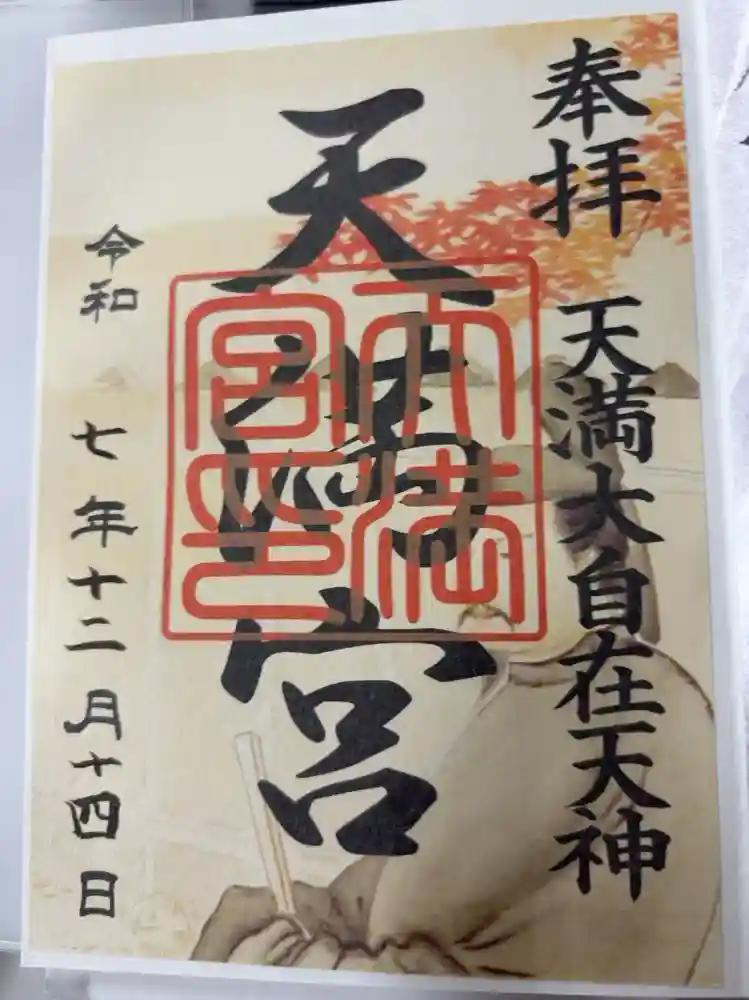 奉拝 天満大自在天神
天満宮
天満宮印
令和 七年十二月十四日